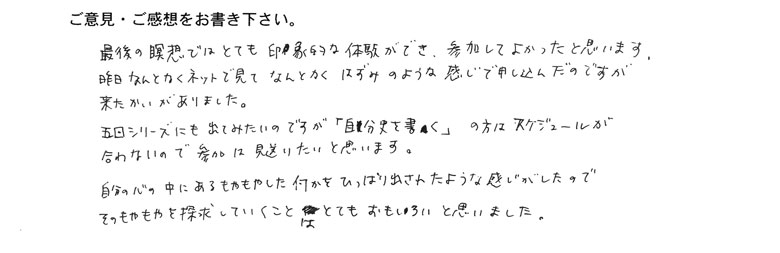 ご意見・ご感想をお書き下さい。
最後の瞑想ではとても印象的な体験ができ、参加してよかったと思います。
昨日なんとなくネットで見てなんとなくはずみのような感じで申し込んだのですが
来たかいがありました。
五回シリーズにも出てみたいのですが「自分史を書く」の方はスケジュールが
合わないので参加は見送りたいと思います。
自分の心の中にあるもやもやした何かをひっぱり出されたような感じがしたので
そのもやもやを探求していくことはとてもおもしろいと思いました。